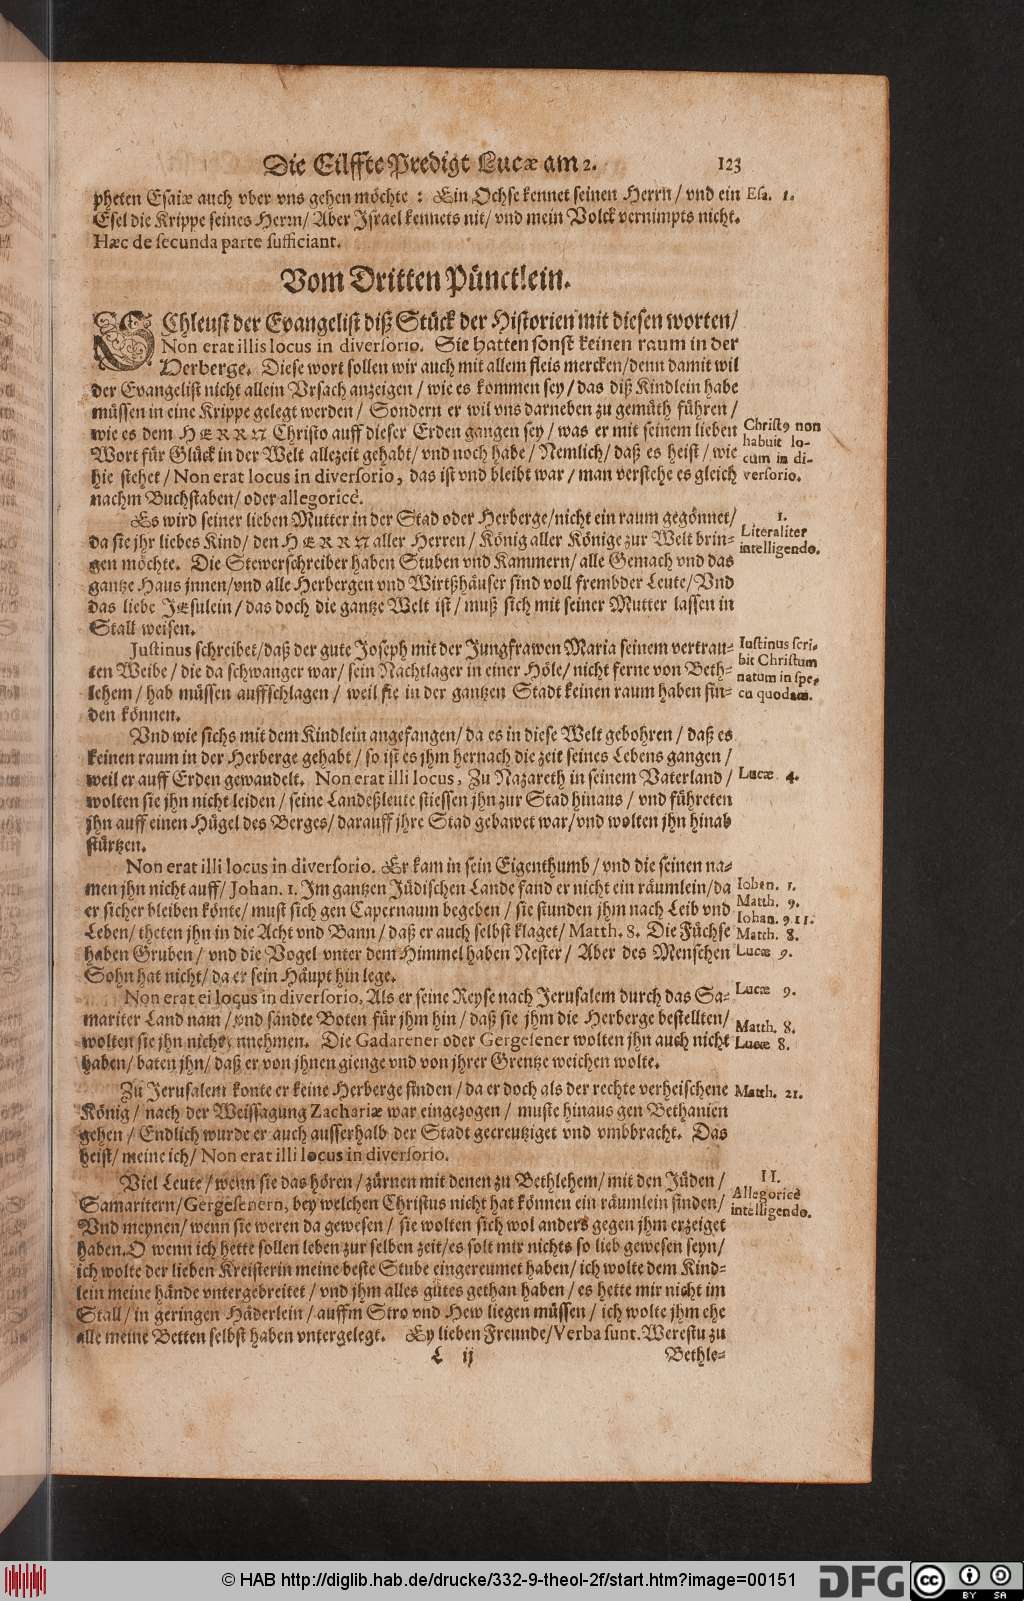 Die Eilffte Predigt Lucæ am 2. 123
pheten Esaiæ auch vber vns gehen möchte : Ein Ochse kennet seinen Herrn / vnd ein
Esa. 1.
Esel die Krippe seines Herrn / Aber Israel kennets nit / vnd mein Volck vernimpts nicht.
Hæc de secunda parte sufficiant.
Vom Dritten Pünctlein.
SChleust der Evangelist diß Stück der Historien mit diesen worten /
Non erat illis locus in diversorio. Sie hatten sonst keinen raum in der
Herberge. Diese wort sollen wir auch mit allem fleis mercken / denn damit wil
der Evangelist nicht allein Vrsach anzeigen / wie es kommen sey / das diß Kindlein habe
müssen in eine Krippe gelegt werden / Sondern er wil vns darneben zu gemüth führen /
wie es dem HERRN Christo auff dieser Erden gangen sey / was er mit seinem lieben
Wort für Glück in der Welt allezeit gehabt / vnd noch habe / Nemlich / daß es heist / wie
hie stehet / Non erat locus in diversorio, das ist vnd bleibt war / man verstehe es gleich
nachm Buchstaben / oder allegoricè.
Christꝰ non
habuit lo-
cum in di-
versorio.
Es wird seiner lieben Mutter in der Stad oder Herberge / nicht ein raum gegönnet /
da sie jhr liebes Kind / den HERRN aller Herren / König aller Könige zur Welt brin-
gen möchte. Die Stewerschreiber haben Stuben vnd Kammern / alle Gemach vnd das
gantze Haus jnnen / vnd alle Herbergen vnd Wirtßhäuser sind voll frembder Leute / Vnd
das liebe JEsulein / das doch die gantze Welt ist / muß sich mit seiner Mutter lassen in
Stall weisen.
1.
Literaliter
intelligendo.
Justinus schreibet / daß der gute Joseph mit der Jungfrawen Maria seinem vertrau-
ten Weibe / die da schwanger war / sein Nachtlager in einer Höle / nicht ferne von Beth-
lehem / hab müssen auffschlagen / weil sie in der gantzen Stadt keinen raum haben fin-
den können.
Iustinus scri-
bit Christum
natum in spe-
cu quodam.
Vnd wie sichs mit dem Kindlein angefangen / da es in diese Welt gebohren / daß es
keinen raum in der Herberge gehabt / so ist es jhm hernach die zeit seines Lebens gangen /
weil er auff Erden gewandelt. Non erat illi locus, Zu Nazareth in seinem Vaterland /
Lucæ 4.
wolten sie jhn nicht leiden / seine Landeßleute stiessen jhn zur Stad hinaus / vnd führeten
jhn auff einen Hügel des Berges / darauff jhre Stad gebawet war / vnd wolten jhn hinab
stürtzen.
Non erat illi locus in diversorio. Er kam in sein Eigenthumb / vnd die seinen na-
men jhn nicht auff / Johan. 1. Im gantzen Jüdischen Lande fand er nicht ein räumlein / da
er sicher bleiben könte / must sich gen Capernaum begeben / sie stunden jhm nach Leib vnd
Leben / theten jhn in die Acht vnd Bann / daß er auch selbst klaget / Matth. 8. Die Füchse
haben Gruben / vnd die Vogel vnter dem Himmel haben Nester / Aber des Menschen
Sohn hat nicht / da er sein Häupt hin lege.
Iohan. 1.
Matth. 9.
Iohan. 9. 11.
Matth. 8.
Lucæ 9.
Non erat ei locus in diversorio, Als er seine Reyse nach Jerusalem durch das Sa-
Lucæ 9.
mariter Land nam / vnd sandte Boten für jhm hin / daß sie jhm die Herberge bestellten /
wolten sie jhn nicht annehmen. Die Gadarener oder Gergesener wolten jhn auch nicht
haben / baten jhn / daß er von jhnen gienge vnd von jhrer Grentze weichen wolte.
Matth. 8.
Lucæ 8.
Zu Jerusalem konte er keine Herberge finden / da er doch als der rechte verheischene
Matth. 21.
König / nach der Weissagung Zachariæ war eingezogen / muste hinaus gen Bethanien
gehen / Endlich wurde er auch ausserhalb der Stadt gecreutziget vnd vmbbracht. Das
heist / meine ich / Non erat illi locus in diversorio.
Viel Leute / wenn sie das hören / zürnen mit denen zu Bethlehem / mit den Jüden /
Samaritern / Gergesenern, bey welchen Christus nicht hat können ein räumlein finden /
Vnd meynen / wenn sie weren da gewesen / sie wolten sich wol anders gegen jhm erzeiget
haben. O wenn ich hette sollen leben zur selben zeit / es solt mir nichts so lieb gewesen seyn /
ich wolte der lieben Kreisterin meine beste Stube eingereumet haben / ich wolte dem Kind-
lein meine hände vntergebreitet / vnd jhm alles gütes gethan haben / es hette mir nicht im
Stall / in geringen Häderlein / auffm Stro vnd Hew liegen müssen / ich wolte jhm ehe
alle meine Betten selbst haben vntergelegt. Ey lieben Freunde / Verba sunt. Werestu zu
II.
Allegoricè
intelligendo.
L ij Bethle-
© HAB http://diglib.hab.de/drucke/332-9-theol-2f/start.htm?image=00151
DFG
cc BY SA